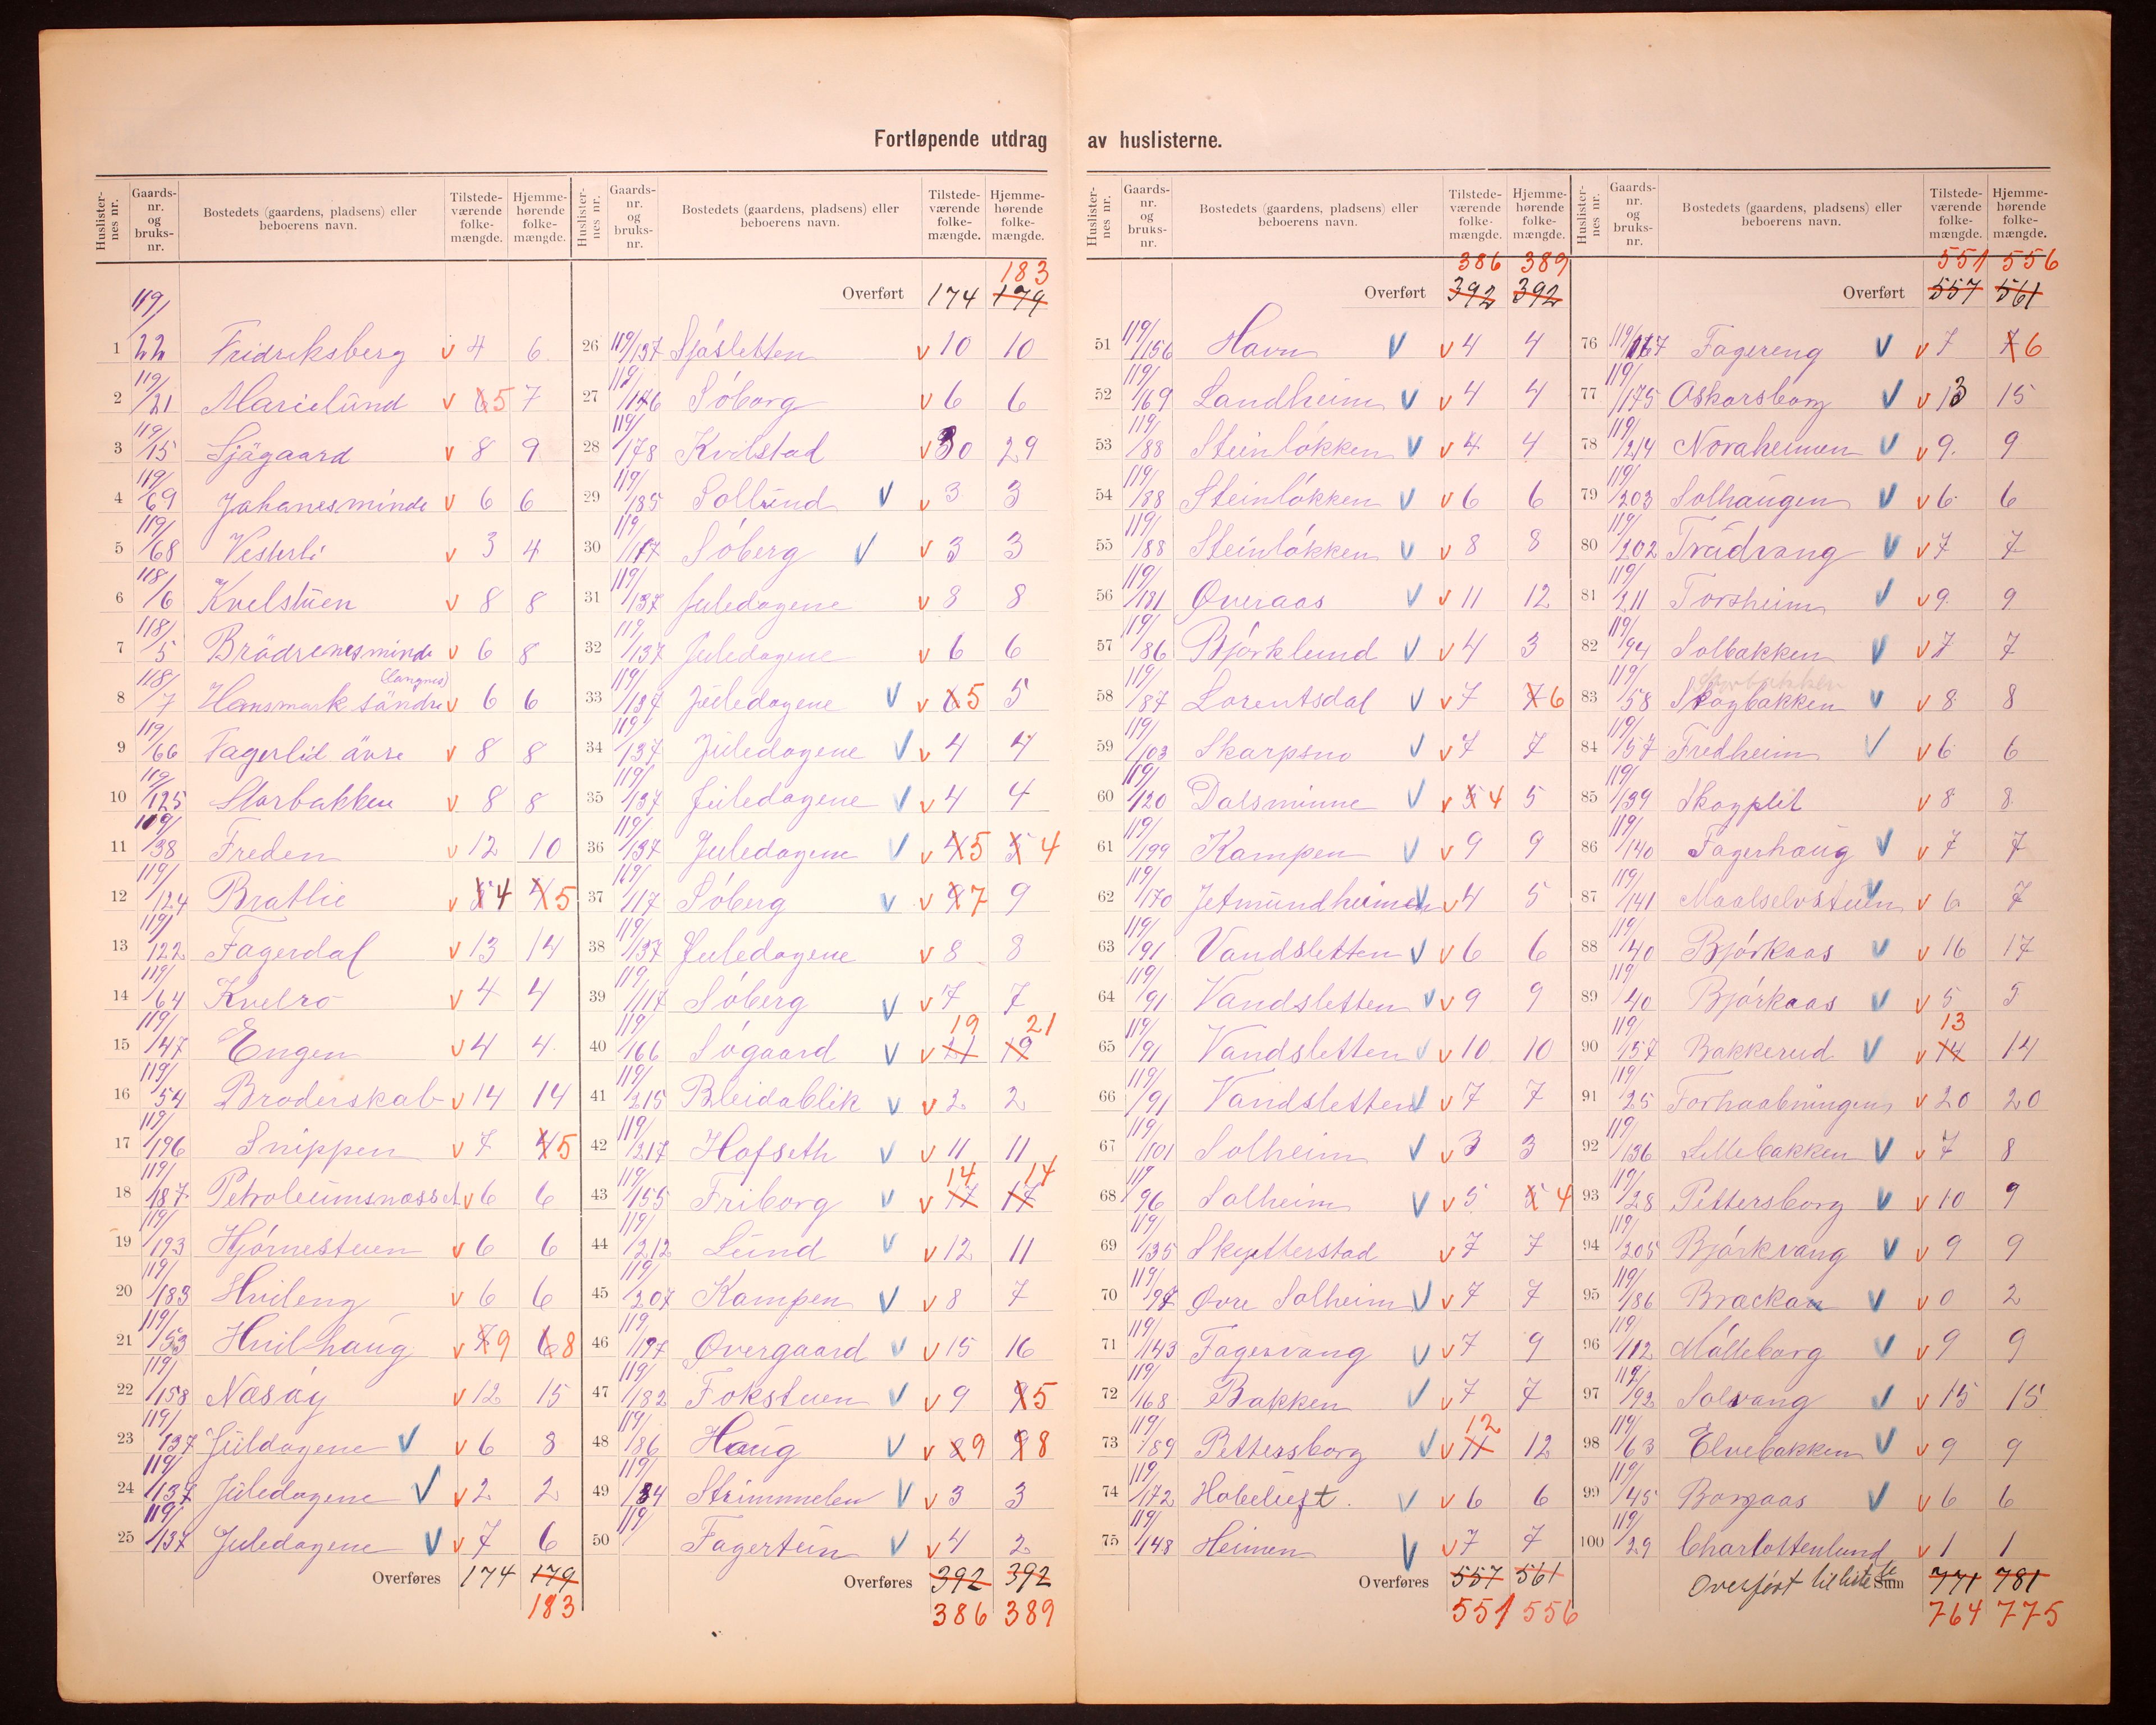 Fortløpende utdrag av huslisterne.
Huslister-nes nr. Gaards-nr. og bruks-nr. Bostedets (gaardens, pladsens) eller beboerens navn. Tilstede-værende folke-mængde. Hjemme-hørende folke-mængde.
119/
1 22 Fridriksberg v 4 6
2 119/21 Marielund v 6 5 7
3 119/15 Sjøgaard v 8 9
4 119/69 Johanesminde v 6 6
5 119/68 Vesterli v 3 4
6 118/6 Kvelstuen v 8 8
7 118/5 Brödrenesminde v 6 8
8 118/7 Hansmark söndre (Langnes) v 6 6
9 119/66 Fagerlid övre v 8 8
10 119/125 Storbakken v 8 8
11 119/38 Freden v 12 10
12 119/124 Bratlie v 5 4 4 5
13 119/122 Fagerdal v 13 14
14 119/64 Kvelro v 4 4
15 119/47 Engen v 4 4
16 119/54 Broderskab v 14 14
17 119/196 Snippen v 7 4 5
18 119/187 Petroleumsnasset v 6 6
19 119/193 Hjörnestuen v 6 6
20 119/183 Hvileng v 6 6
21 119/53 Hvilhaug v 7 9 6 8
22 119/158 Næsöy v 12 15
23 119/137 Juldagene v v 6 8
24 119/137 Juledagene v v 2 2
25 119/137 Juledagene v v 7 6
Overføres 174 179
183
Huslister-nes nr. Gaards-nr. og bruks-nr. Bostedets (gaardens, pladsens) eller beboerens navn. Tilstede-værende folke-mængde. Hjemme-hørende folke-mængde.
183
Overført 174 179
26 119/137 Sjösletten v 10 10
27 119/146 Söborg v 6 6
28 119/178 Kvilstad v 30 29
29 119/185 Sollund v v 3 3
30 119/117 Söberg v v 3 3
31 119/137 Juledagene v 8 8
32 119/137 Juledagene v 6 6
33 119/137 Juledagene v v 6 5 5
34 119/137 Juledagene v v 4 4
35 119/137 Juledagene v v 4 4
36 119/137 Juledagene v v 4 5 5 4
37 119/117 Söberg v v 8 7 9
38 119/137 Juledagene v 8 8
39 119/117 Söberg v v 7 7
19 21
40 119/166 Sögaard v v 21 19
41 119/215 Bleidablik v v 2 2
42 119/217 Hofseth v v 11 11
14 14
43 119/155 Friborg v v 17 17
44 119/212 Lund v v 12 11
45 119/207 Kampen v v 8 7
46 119/197 Øvergaard v v 15 16
47 119/182 Fokstuen v v 9 9 5
48 119/186 Haug v v 8 9 9 8
49 119/34 Strimmelen v v 3 3
50 119/ Fagertun v v 4 2
Overføres 392 392
386 389
Huslister-nes nr. Gaards-nr. og bruks-nr. Bostedets (gaardens, pladsens) eller beboerens navn. Tilstede-værende folke-mængde. Hjemme-hørende folke-mængde.
386 389
Overført 392 392
51 119/156 Havn v v 4 4
52 119/169 Landheim v v 4 4
53 119/88 Steinlökken v v 4 4
54 119/88 Steinlökken v v 6 6
55 119/88 Steinlökken v v 8 8
56 119/181 Øveraas v v 11 12
57 119/86 Björklund v v 4 3
58 119/87 Lorentsdal v v 7 7 6
59 119/103 Skarpsno v v 7 7
60 119/120 Dalsminne v v 5 4 5
61 119/199 Kampen v v 9 9
62 119/170 Jetmundheimen v v 4 5
63 119/91 Vandsletten v v 6 6
64 119/91 Vandsletten v v 9 9
65 119/91 Vandsletten v v 10 10
66 119/91 Vandsletten v v 7 7
67 119/101 Solheim v v 3 3
68 119/96 Solheim v v 5 5 4
69 119/135 Skytterstad v 7 7
70 119/97 Øvre Solheim v v 7 7
71 119/143 Fagervang v v 7 9
72 119/168 Bakken v v 7 7
12
73 119/89 Pettersborg v v 11 12
74 119/172 Habeluft. v v 6 6
75 119/148 Heimen v v 7 7
Overføres 557 561
551 556
Huslister-nes nr. Gaards-nr. og bruks-nr. Bostedets (gaardens, pladsens) eller beboerens navn. Tilstede-værende folke-mængde. Hjemme-hørende folke-mængde.
551 556
Overført 557 561
76 119/167 Fagereng v v 7 7 6
77 119/175 Oskarsborg v v 13 15
78 119/214 Noraheimen v v 9 9
79 119/203 Solhaugen v v 6 6
80 119/202 Trädvang v v 7 7
81 119/211 Torsheim v v 9 9
82 119/94 Solbakken v v 7 7
83 119/58 Skogbakken v v 8 8
84 119/57 Fredheim v v 6 6
85 119/39 Skogplit v 8 8
86 119/140 Fagerhaug v v 7 7
87 119/141 Maalselvstuen v v 6 7
88 119/40 Björkaas v v 16 17
89 119/40 Björkaas v v 5 5
13
90 119/157 Bakkerud v v 14 14
91 119/25 Forhaabningen v 20 20
92 119/136 Lillebakken v v 7 8
93 119/28 Pettersborg v v 10 9
94 119/205 Björkvang v v 9 9
95 119/186 Brackan v v 0 2
96 119/112 Mölleborg v v 9 9
97 119/92 Solvang v v 15 15
98 119/63 Elvebakken v v 9 9
99 119/45 Borgaas v v 6 6
100 119/29 Charlottenlund v 1 1
Overført til liste Sum 771 781
764 775